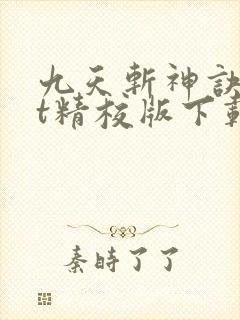 九天斬神訣
t精校版下載
秦時了了